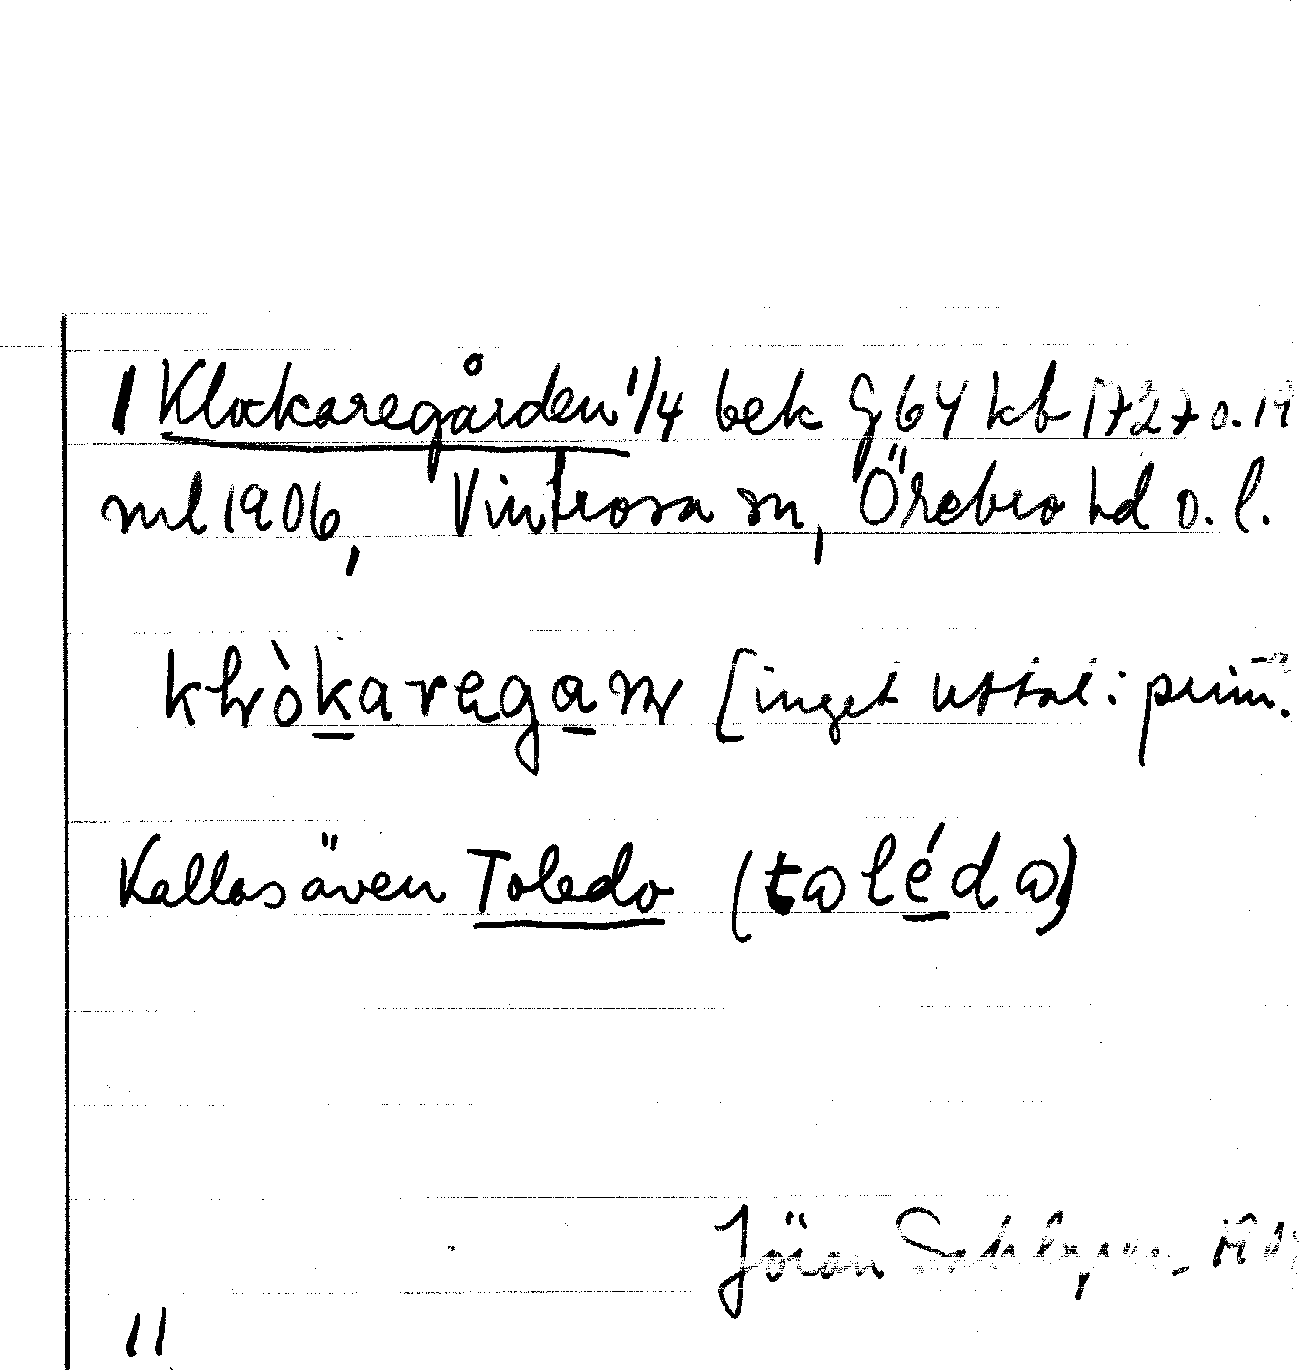 1 Klockaregården 1/4 bek G64 kb 1727 o. 19
ml 1906, Vintrosa sn, Örebro hd ö. l.
[inget uttal: prim.
Kallas även Toledo (taléda)
Jöran Sahlgren
11